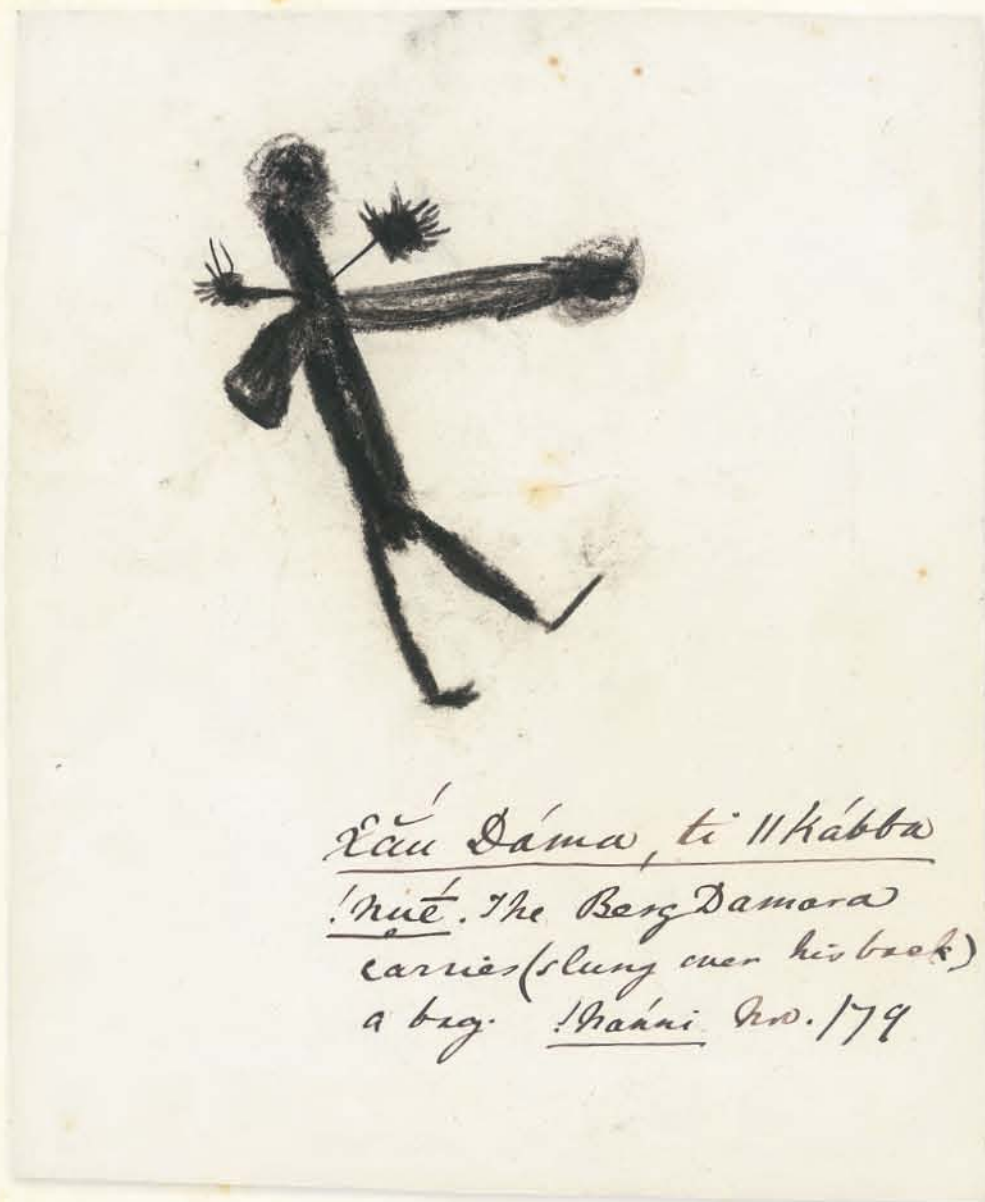 Xắu Dáma, ti ǁkábba
!nuḗ. The Berg Damara
carries (slung over his back)
a bag. !nánni Nov. /79